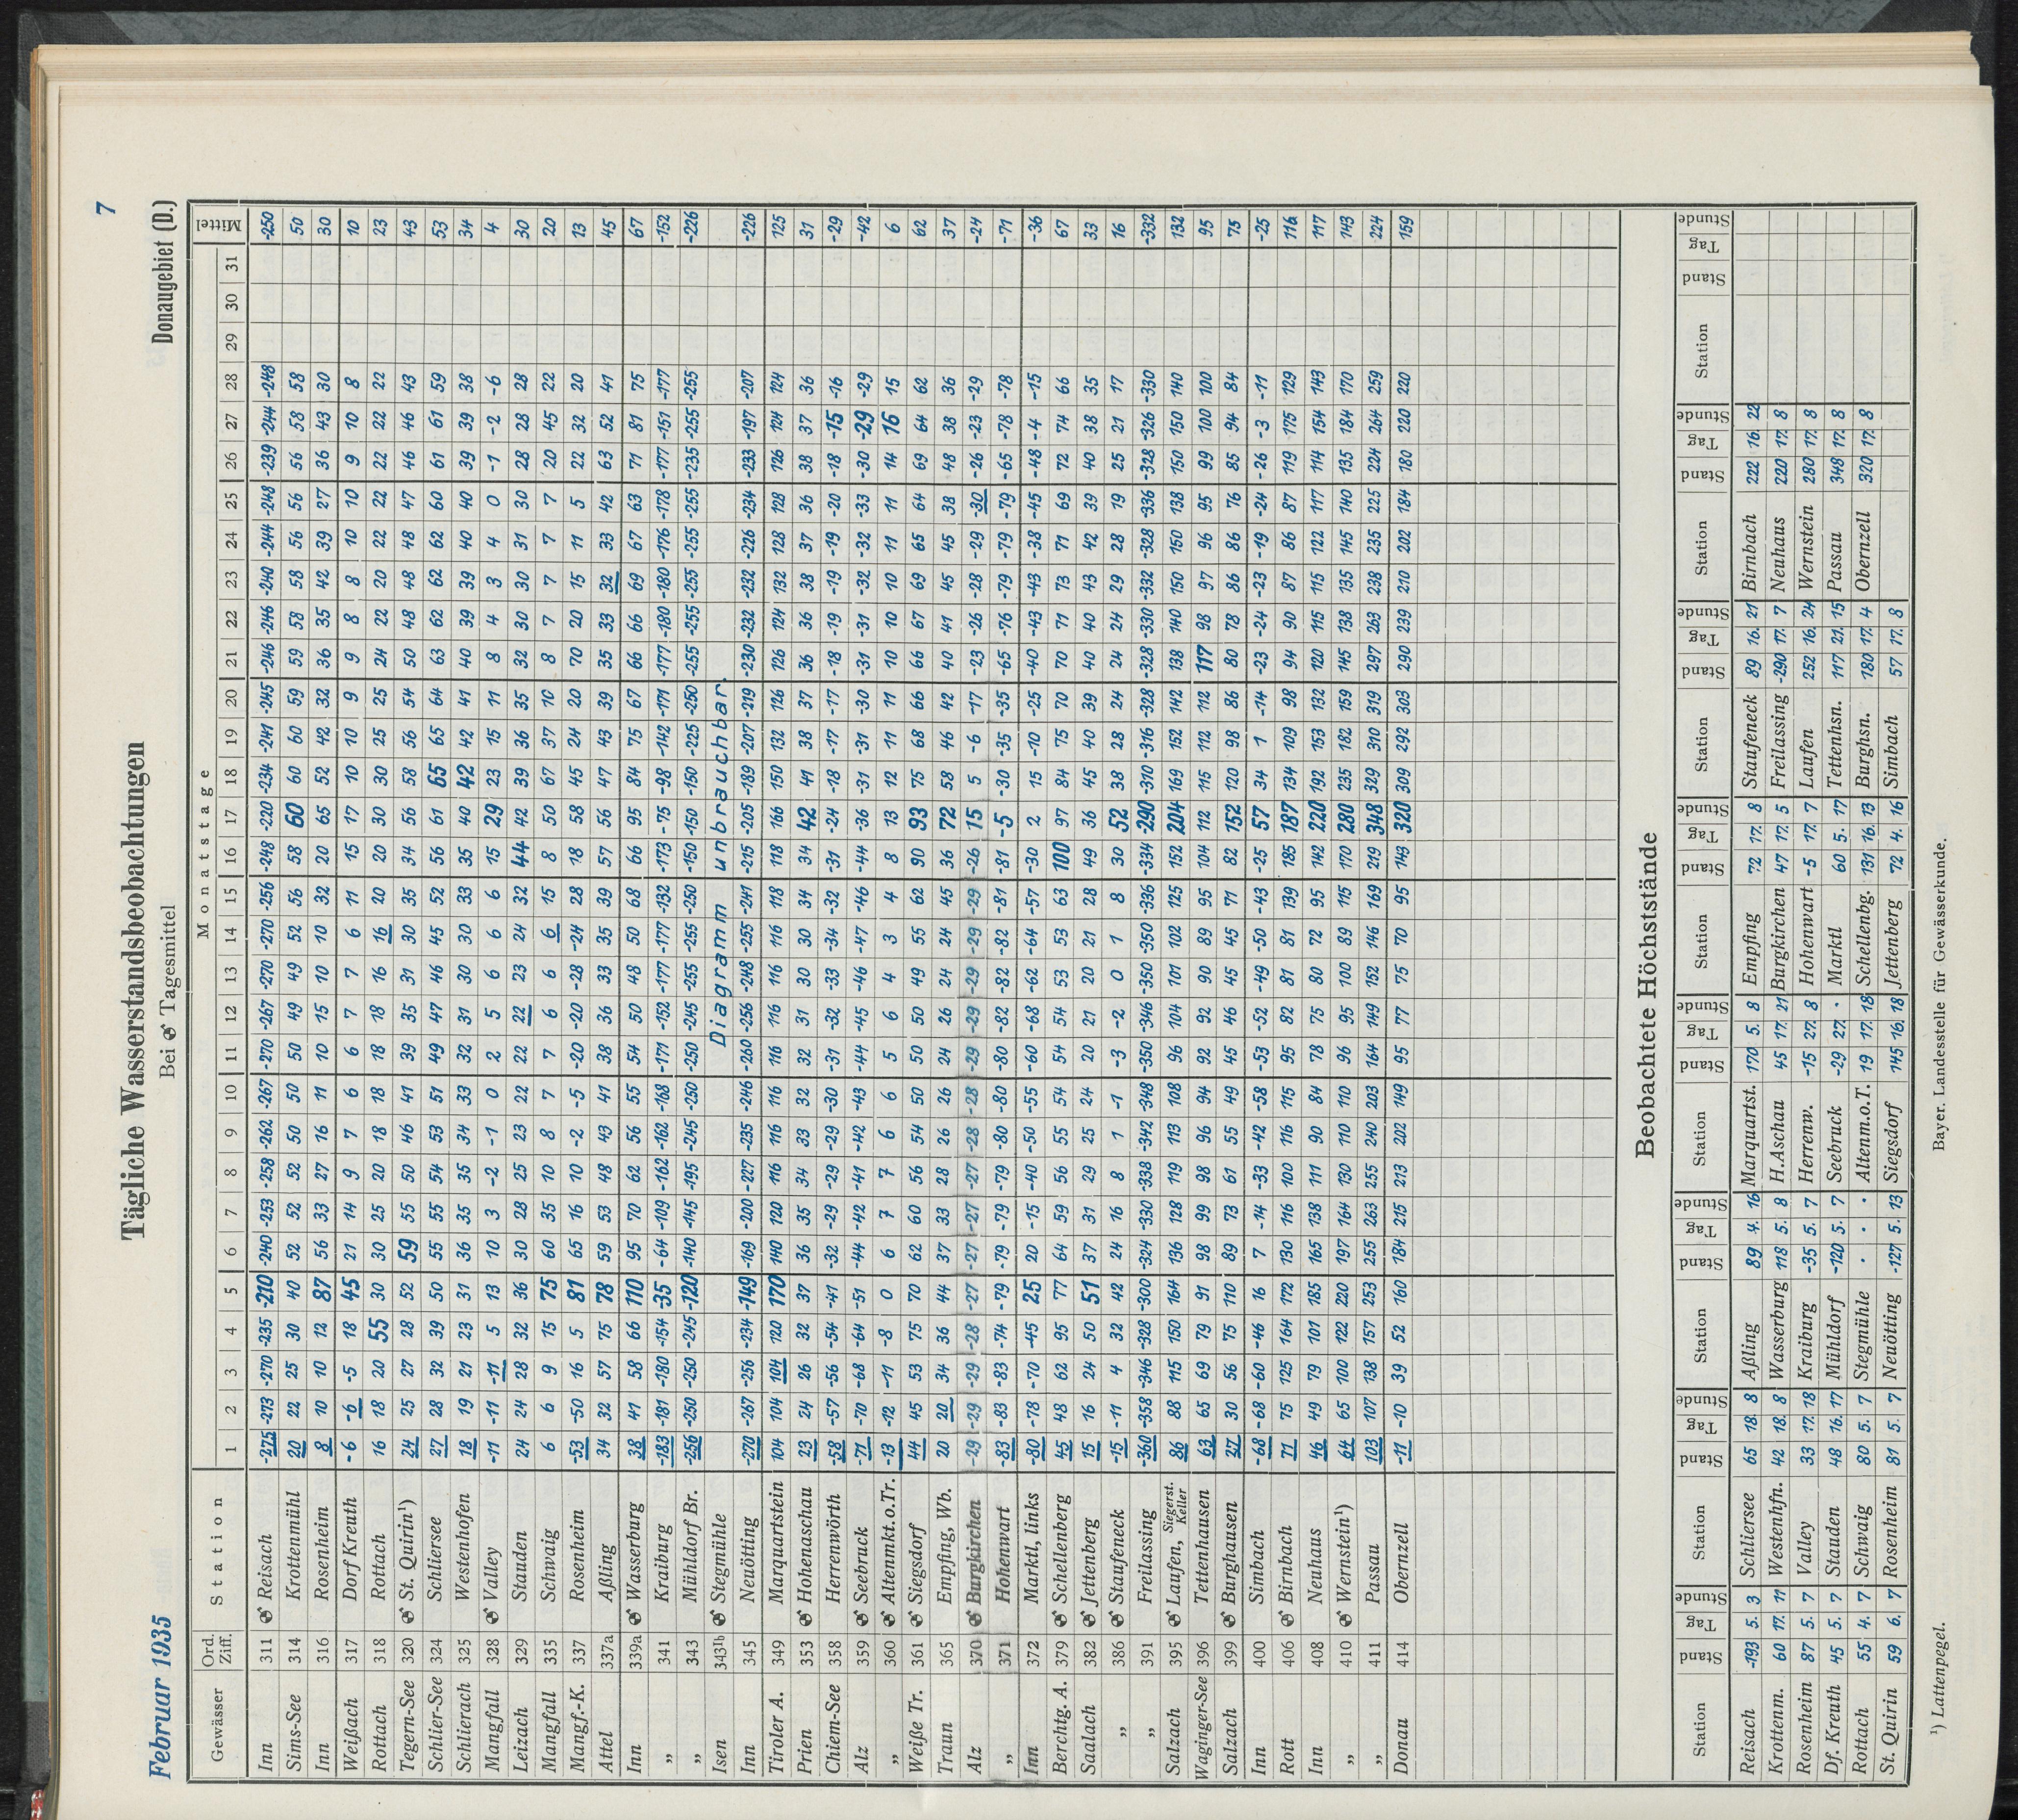 Februar 1935
Tägliche Wasserstandsbeobachtungen
Bei Tagesmittel
Donaugebiet (D.)
7
Gewässer Ord. Ziff. Station Monatstage Mittel
1 2 3 4 5 6 7 8 9 10 11 12 13 14 15 16 17 18 19 20 21 22 23 24 25 26 27 28 29 30 31
Inn 311 Reisach -275 -273 -270 -235 -210 -240 -253 -258 -262 -267 -270 -267 -270 -270 -256 -248 -220 -234 -241 -245 -246 -246 -240 -244 -248 -239 -244 -248 -250
Sims-See 314 Krottenmühl 20 22 25 30 40 52 52 52 50 50 50 49 49 52 56 58 60 60 60 59 59 58 58 56 56 56 58 58 50
Inn 316 Rosenheim 8 10 10 12 87 56 33 27 16 11 10 15 10 10 32 20 65 52 42 32 36 35 42 39 27 36 43 30 30
Weißach 317 Dorf Kreuth -6 -6 -5 18 45 21 14 9 7 6 6 7 7 6 11 15 17 10 10 9 9 8 8 10 10 9 10 8 10
Rottach 318 Rottach 16 18 20 55 30 30 25 20 18 18 18 18 16 16 20 20 30 30 25 25 24 22 20 22 22 22 22 22 23
Tegern-See 320 St. Quirin¹) 24 25 27 28 52 59 55 50 46 41 39 35 31 30 35 34 56 58 56 54 50 48 48 48 47 46 46 43 43
Schlier-See 324 Schliersee 27 28 32 39 50 55 55 54 53 51 49 47 46 45 52 56 61 65 65 64 63 62 62 62 60 61 61 59 53
Schlierach 325 Westenhofen 18 19 21 23 31 36 35 35 34 33 32 31 30 30 33 35 40 42 42 41 40 39 39 40 40 39 39 38 34
Mangfall 328 Valley -11 -11 -11 5 13 10 3 -2 -1 0 2 5 6 6 6 15 29 23 15 11 8 4 3 4 0 -1 -2 -6 4
Leizach 329 Stauden 24 24 28 32 36 30 28 25 23 22 22 22 23 24 32 44 42 39 36 35 32 30 30 31 30 28 28 28 30
Mangfall 335 Schwaig 6 6 9 15 75 60 35 10 8 7 7 6 6 6 15 8 50 67 37 10 8 7 7 7 7 20 45 22 20
Mangf.-K. 337 Rosenheim -53 -50 16 5 81 65 16 10 -2 -5 -20 -20 -28 -24 28 18 58 45 24 20 70 20 15 11 5 22 32 20 13
Attel 337a Aßling 34 32 57 75 78 59 53 48 43 41 38 36 33 35 39 57 56 47 43 39 35 33 32 33 42 63 52 41 45
Inn 339a Wasserburg 38 41 58 66 110 95 70 62 56 55 54 50 48 50 68 66 95 84 75 67 66 66 69 67 63 71 81 75 67
„ 341 Kraiburg -183 -181 -180 -154 -35 -64 -109 -162 -162 -168 -171 -152 -177 -177 -132 -173 -75 -98 -142 -171 -177 -180 -180 -176 -178 -177 -151 -177 -152
„ 343 Mühldorf Br. -256 -250 -250 -245 -120 -140 -145 -195 -245 -250 -250 -245 -255 -255 -250 -150 -150 -150 -225 -250 -255 -255 -255 -255 -255 -235 -255 -255 -226
Isen 343¹b Stegmühle Diagramm unbrauchbar.
Inn 345 Neuötting -270 -267 -256 -234 -149 -169 -200 -227 -235 -246 -260 -256 -248 -255 -241 -215 -205 -189 -207 -219 -230 -232 -232 -226 -234 -233 -197 -207 -226
Tiroler A. 349 Marquartstein 104 104 104 120 170 140 120 116 116 116 116 116 116 116 118 118 166 150 132 126 126 124 132 128 128 126 124 124 125
Prien 353 Hohenaschau 23 24 26 32 37 36 35 34 33 32 32 31 30 30 34 34 42 41 38 37 36 36 38 37 36 38 37 36 31
Chiem-See 358 Herrenwörth -58 -57 -56 -54 -41 -32 -29 -29 -29 -30 -31 -32 -33 -34 -32 -31 -24 -18 -17 -17 -18 -19 -19 -19 -20 -18 -15 -16 -29
Alz 359 Seebruck -71 -70 -68 -64 -51 -44 -42 -41 -42 -43 -44 -45 -46 -47 -46 -44 -36 -31 -31 -30 -31 -31 -32 -32 -33 -30 -29 -29 -42
„ 360 Altenmkt.o.Tr. -13 -12 -11 -8 0 6 7 7 6 6 5 6 4 3 4 8 13 12 11 11 10 10 10 11 11 14 16 15 6
Weiße Tr. 361 Siegsdorf 44 45 53 75 70 62 60 56 54 50 50 50 49 55 62 90 93 75 68 66 66 67 69 65 64 69 64 62 62
Traun 365 Empfing, Wb. 20 20 34 36 44 37 33 28 26 26 24 26 24 24 45 36 72 58 46 42 40 41 45 45 38 48 38 36 37
Alz 370 Burgkirchen -29 -29 -29 -28 -27 -27 -27 -27 -28 -28 -29 -29 -29 -29 -29 -26 15 5 -6 -17 -23 -26 -28 -29 -30 -26 -23 -29 -24
„ 371 Hohenwart -83 -83 -83 -74 -79 -79 -79 -79 -80 -80 -80 -82 -82 -82 -81 -81 -5 -30 -35 -35 -65 -76 -79 -79 -79 -65 -78 -78 -71
Inn 372 Marktl, links -80 -78 -70 -45 25 20 -15 -40 -50 -55 -60 -68 -62 -64 -57 -30 2 15 -10 -25 -40 -43 -43 -38 -45 -48 -4 -15 -36
Berchtg. A. 379 Schellenberg 45 48 62 95 77 64 59 56 55 54 54 54 53 53 63 100 97 84 75 70 70 71 73 71 69 72 74 66 67
Saalach 382 Jettenberg 15 16 24 50 51 37 31 29 25 24 20 21 20 21 28 49 36 45 40 39 40 40 43 42 39 40 38 35 33
„ 386 Staufeneck -15 -11 4 32 42 24 16 8 1 -1 -3 -2 0 1 8 30 52 38 28 24 24 24 29 28 19 25 21 17 16
„ 391 Freilassing -360 -358 -346 -328 -300 -324 -330 -338 -342 -348 -350 -346 -350 -350 -336 -334 -290 -310 -316 -328 -328 -330 -332 -328 -336 -328 -326 -330 -332
Salzach 395 Laufen, Siegerst. Keller 86 88 115 150 164 136 128 119 113 108 96 104 101 102 125 152 204 169 152 142 138 140 150 150 138 150 150 140 132
Waginger-See 396 Tettenhausen 63 65 69 79 91 98 99 98 96 94 92 92 90 89 95 104 112 115 112 112 117 98 97 96 95 99 100 100 95
Salzach 399 Burghausen 27 30 56 75 110 89 73 61 55 49 45 46 45 45 71 82 152 120 98 86 80 78 86 86 76 85 94 84 75
Inn 400 Simbach -68 -68 -60 -46 16 7 -14 -33 -42 -58 -53 -52 -49 -50 -43 -25 57 34 1 -14 -23 -24 -23 -19 -24 -26 -3 -11 -25
Rott 406 Birnbach 71 75 125 164 172 130 116 100 116 115 95 82 81 81 139 185 187 134 109 98 94 90 87 86 87 119 175 129 116
Inn 408 Neuhaus 46 49 79 101 185 165 138 111 90 84 78 75 80 72 95 142 220 192 153 132 120 115 115 122 117 114 154 143 117
„ 410 Wernstein¹) 64 65 100 122 220 197 164 130 110 110 96 95 100 89 115 170 280 235 182 159 145 138 135 145 140 135 184 170 143
„ 411 Passau 103 107 138 157 253 255 263 255 240 203 164 149 152 146 169 219 348 329 310 319 297 263 238 235 225 224 264 259 224
Donau 414 Obernzell -11 -10 39 52 160 184 215 213 202 149 95 77 75 70 95 143 320 309 292 303 290 239 210 202 184 180 220 220 159
Beobachtete Höchststände
Station Stand Tag Stunde Station Stand Tag Stunde Station Stand Tag Stunde Station Stand Tag Stunde Station Stand Tag Stunde Station Stand Tag Stunde Station Stand Tag Stunde Station Stand Tag Stunde
Reisach -193 5. 3 Schliersee 65 18. 8 Aßling 89 4. 16 Marquartst. 170 5. 8 Empfing 72 17. 8 Staufeneck 89 16. 21 Birnbach 222 16. 22
Krottenm. 60 17. 11 Westenhfn. 42 18. 8 Wasserburg 118 5. 8 H.Aschau 45 17. 21 Burgkirchen 47 17. 5 Freilassing -290 17. 7 Neuhaus 220 17. 8
Rosenheim 87 5. 7 Valley 33 17. 18 Kraiburg -35 5. 7 Herrenw. -15 27. 8 Hohenwart -5 17. 7 Laufen 252 16. 24 Wernstein 280 17. 8
Df. Kreuth 45 5. 7 Stauden 48 16. 17 Mühldorf -120 5. 7 Seebruck -29 27. · Marktl 60 5. 17 Tettenhsn. 117 21. 15 Passau 348 17. 8
Rottach 55 4. 7 Schwaig 80 5. 7 Stegmühle · · · Altenm.o.T. 19 17. 18 Schellenbg. 131 16. 13 Burghsn. 180 17. 4 Obernzell 320 17. 8
St. Quirin 59 6. 7 Rosenheim 81 5. 7 Neuötting -127 5. 13 Siegsdorf 145 16. 18 Jettenberg 72 4. 16 Simbach 57 17. 8
¹) Lattenpegel.
Bayer. Landesstelle für Gewässerkunde.